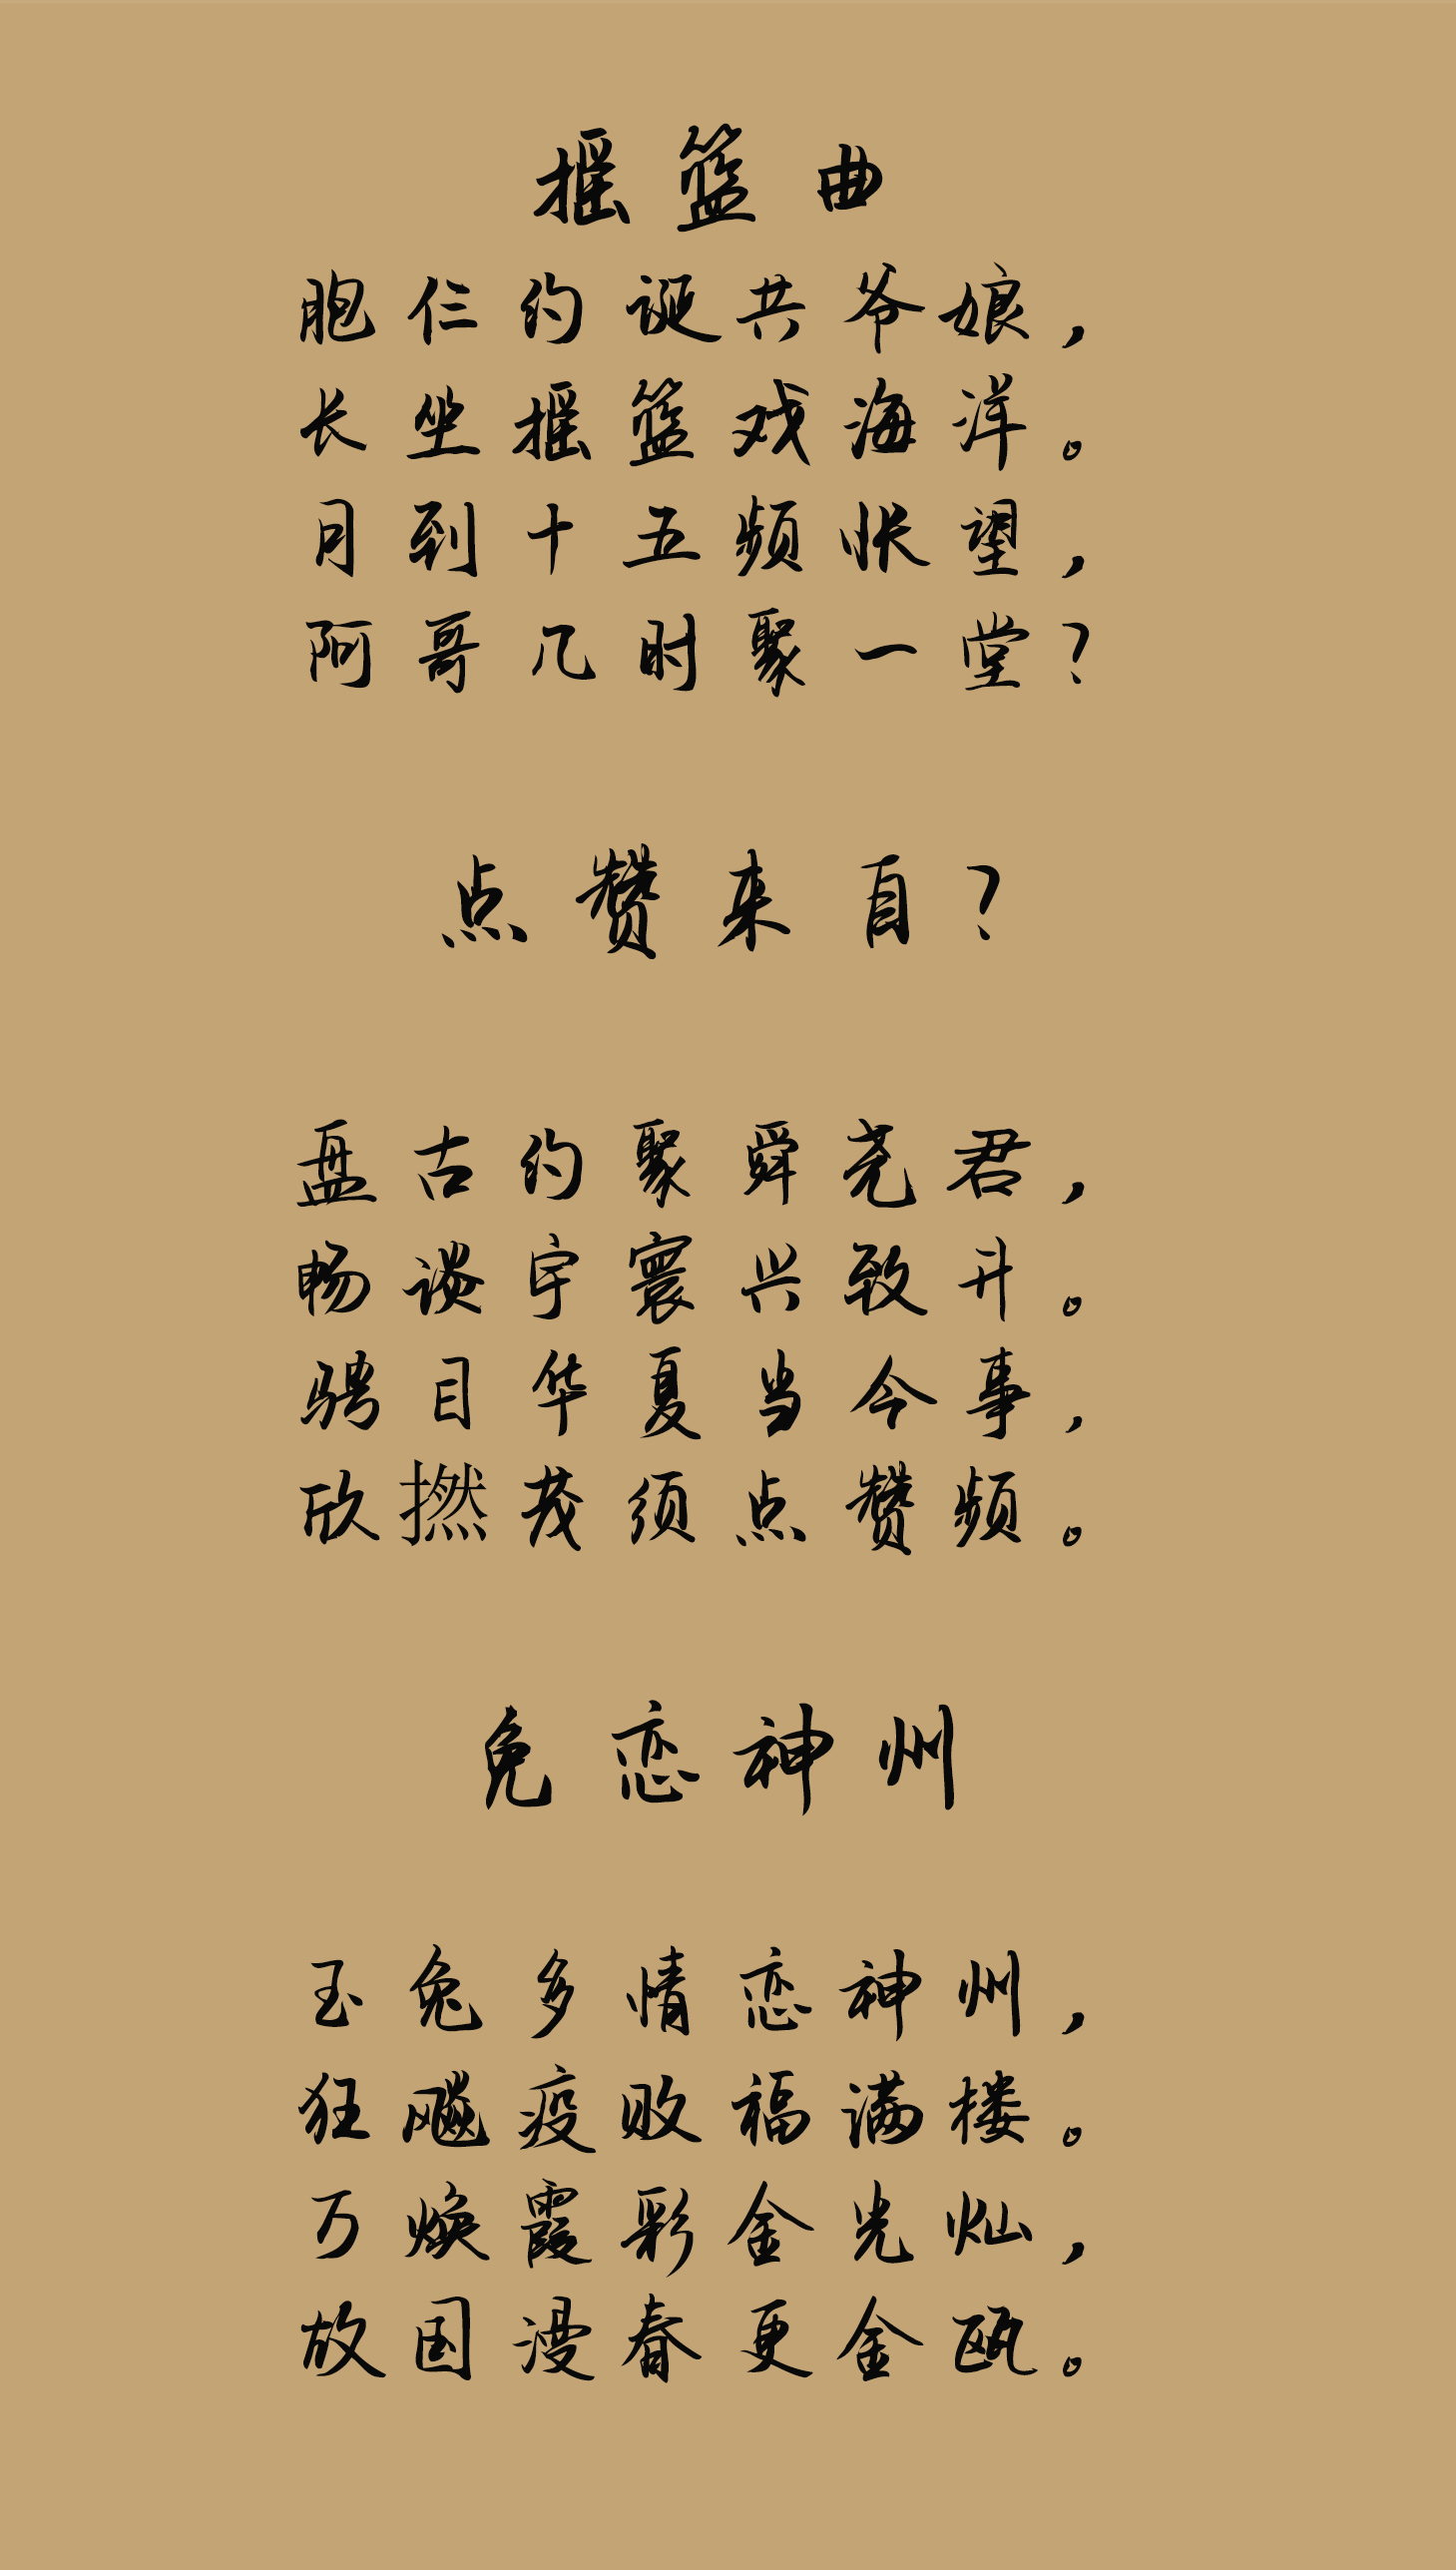 摇篮曲
胞仨约诞共爷娘，
长坐摇篮戏海洋。
月到十五频怅望，
阿哥几时聚一堂？
点赞来自？
盘古约聚舜尧君，
畅谈宇寰兴致升。
骋目华夏当今事，
欣撚茂须点赞频。
免恋神州
玉兔多情恋神州，
狂飚疫败福满楼。
万焕霞彩金光灿，
故国漫春更金瓯。